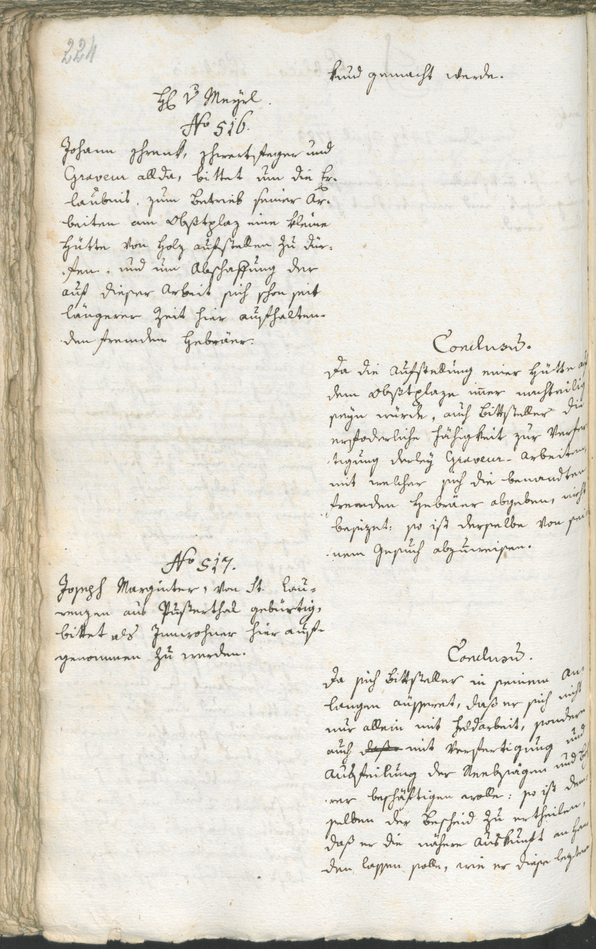 224
kund gemacht werde.
H. v. Mayrl.
No 516.
Johann Schrenk, Schwertfeger und
Graveur allda, bittet um die Er-
laubnis, zum Betrieb seiner Ar-
beiten am Obstplaz eine kleine
Hütte von Holz aufstellen zu dür-
fen, und um Abschaffung der
auf dieser Arbeit sich schon seit
längerer Zeit hier aufhalten-
den fremden Hebräer.
Conclusũ.
Da die Aufstellung einer Hütte auf
dem Obstplaze immer nachteilig
seyn würde, auch Bittsteller die
erforderliche Fähigkeit zur Verfer
tigung derley Graveur-Arbeiten,
mit welcher sich die benandten
fremden Hebräer abgeben, nicht
besizet: so ist derselbe von sei
nem Gesuch abzuweisen.
No 517.
Joseph Marginter, von St. Lau-
renzen aus Pusterthal gebürtig,
bittet als Innwohner hier auf-
genommen zu werden.
Conclusũ.
Da sich Bittsteller in seinem An-
langen äusseret, daß er sich nicht
nur allein mit Feldarbeit, sondern
auch daß mit Verfertigung und
Ausfeilung der
rer beschäftigen wolle: so ist dem
selben der Bescheid zu ertheilen,
daß er die nähere Auskunft an
den lassen solle, wie er diese leztere